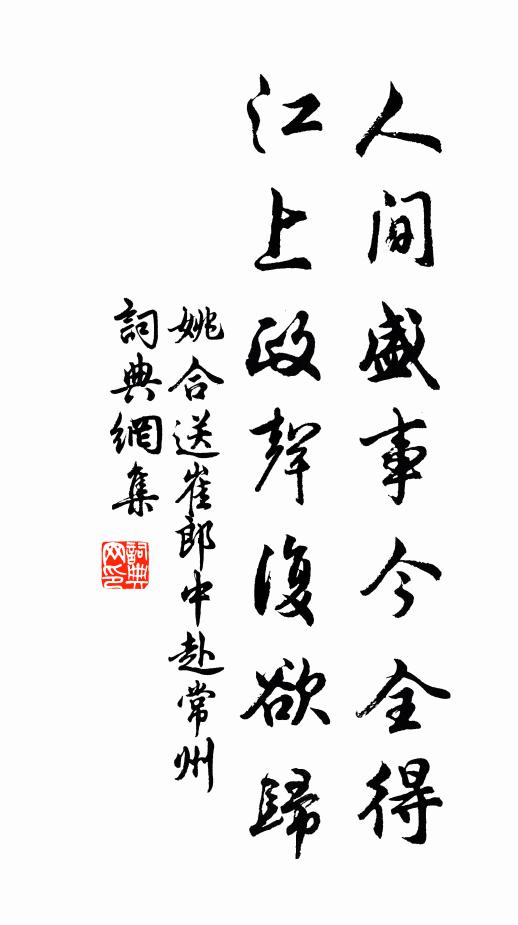 人間盛事今全得
江上政聲復欲歸
姚合送崔郎中赴常州
詞典網集
詞典网印